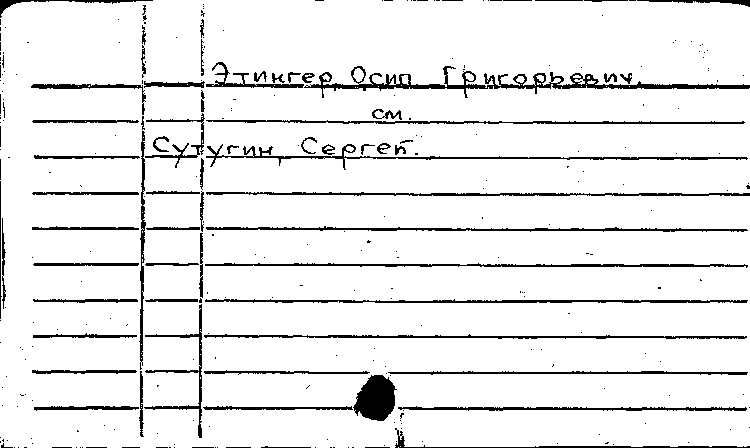 Этингер, Осип Григорьевич.
см.
Сутугин, Сергей.